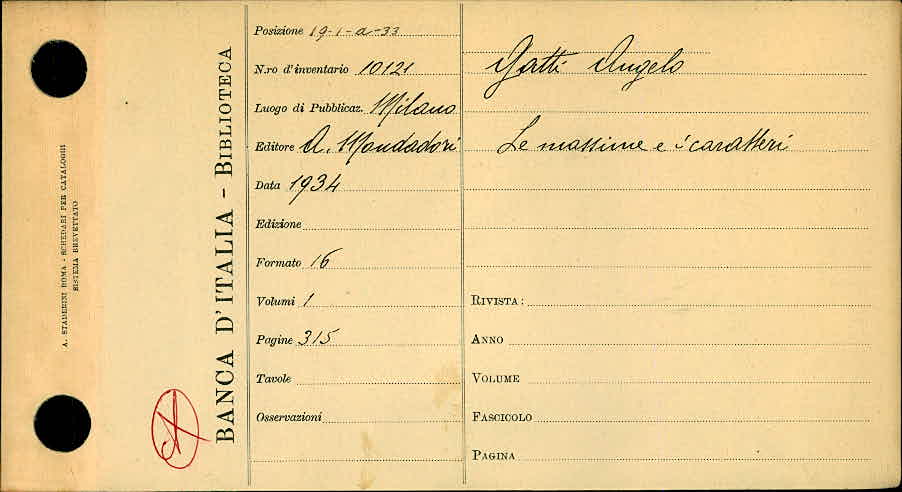 A. STADERINI ROMA - SCHEDARI PER CATALOGHI
SISTEMA BREVETTATO
BANCA D'ITALIA - BIBLIOTECA
Posizione 19-1-a-33
N.ro d'inventario 10121
Luogo di Pubblicaz. Milano
Editore A. Mondadori
Data 1934
Edizione
Formato 16
Volumi 1
Pagine 315
Tavole
Osservazioni
Gatti Angelo
Le massime e i caratteri
RIVISTA:
ANNO
VOLUME
FASCICOLO
PAGINA